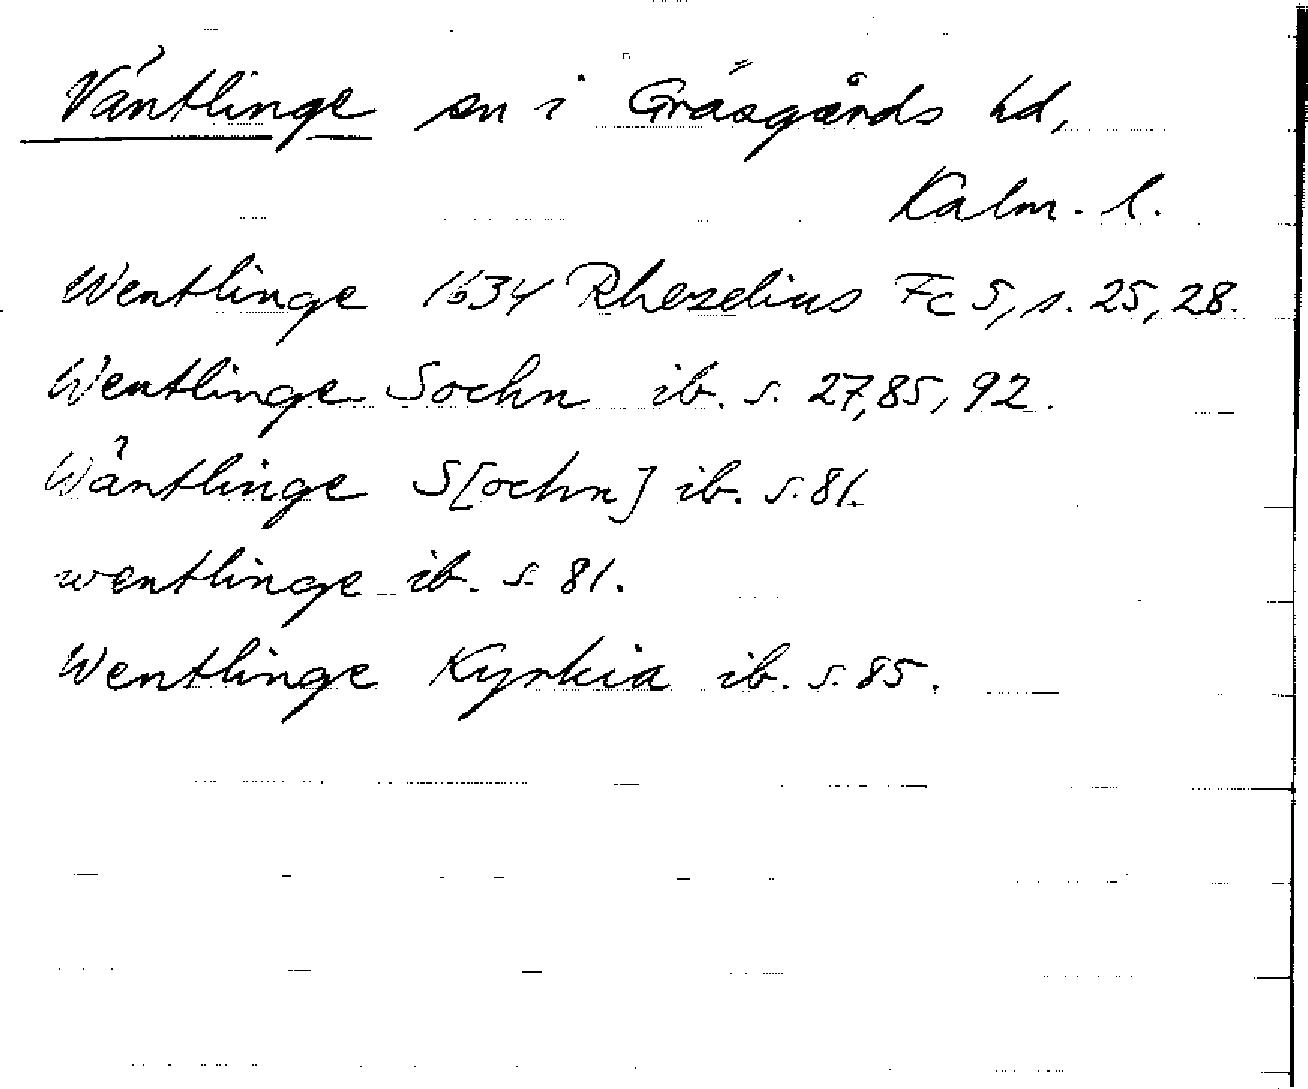 Väntlinge sn i Gräsgårds hd,
Kalm. l.
Wentlinge 1634 Rhezelius Fc 5, s. 25, 28.
Wentlinge Sochn ib. s. 27, 85, 92.
Wäntlinge S[ochn] ib. s. 81.
wentlinge ib. s. 81.
Wentlinge Kyrkia ib. s. 85.